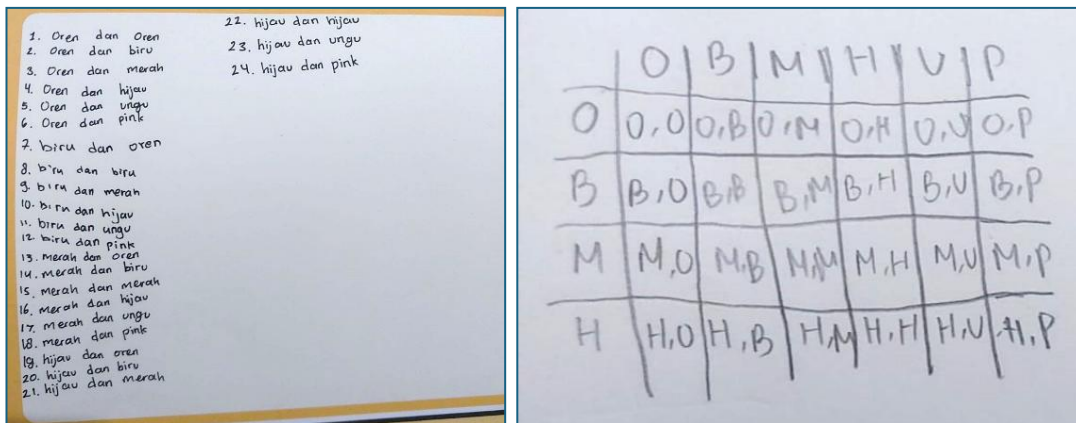 1. Oren dan Oren
2. Oren dan biru
3. Oren dan merah
4. Oren dan hijau
5. Oren dan ungu
6. Oren dan pink
7. biru dan oren
8. biru dan biru
9. biru dan merah
10. biru dan hijau
11. biru dan ungu
12. biru dan pink
13. merah dan oren
14. merah dan biru
15. merah dan merah
16. merah dan hijau
17. merah dan ungu
18. merah dan pink
19. hijau dan oren
20. hijau dan biru
21. hijau dan merah
22. hijau dan hijau
23. hijau dan ungu
24. hijau dan pink
O B M H U P
O O,O O,B O,M O,H O,U O,P
B B,O B,B B,M B,H B,U B,P
M M,O M,B M,M M,H M,U M,P
H H,O H,B H,M H,H H,U H,P